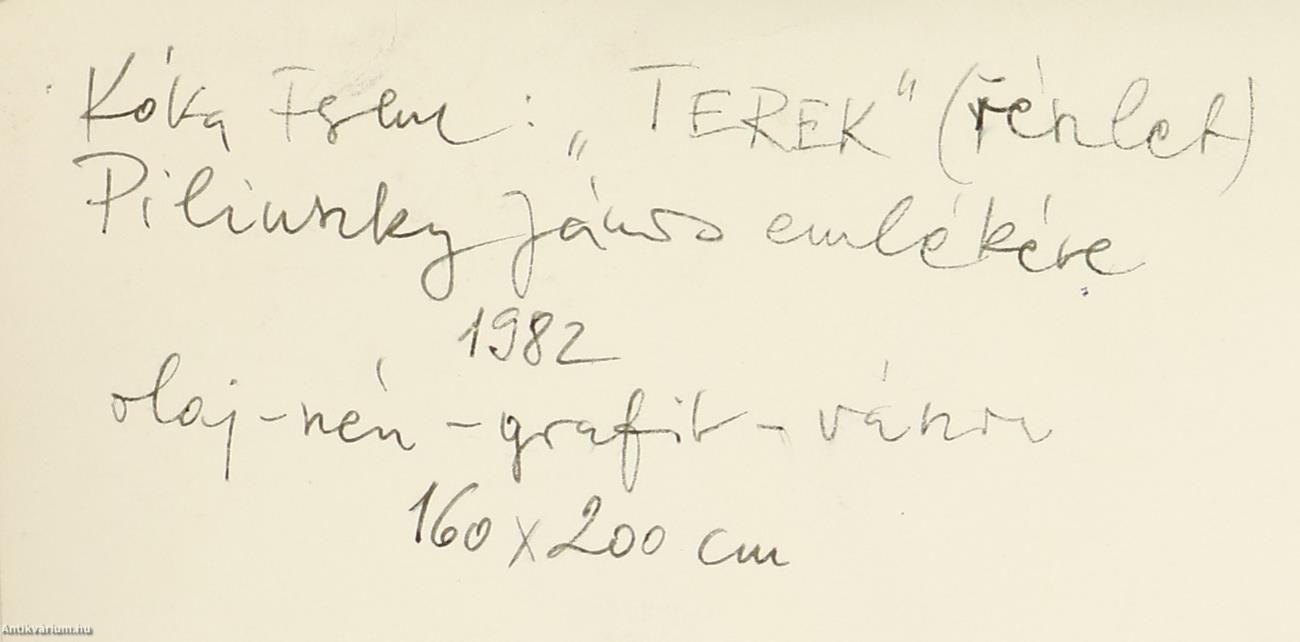 Kóka Ferenc: „TEREK" (részlet)
Pilinszky János emlékére
1982
olaj-szén-grafit-vászon
160 x 200 cm
Antikvárium.hu